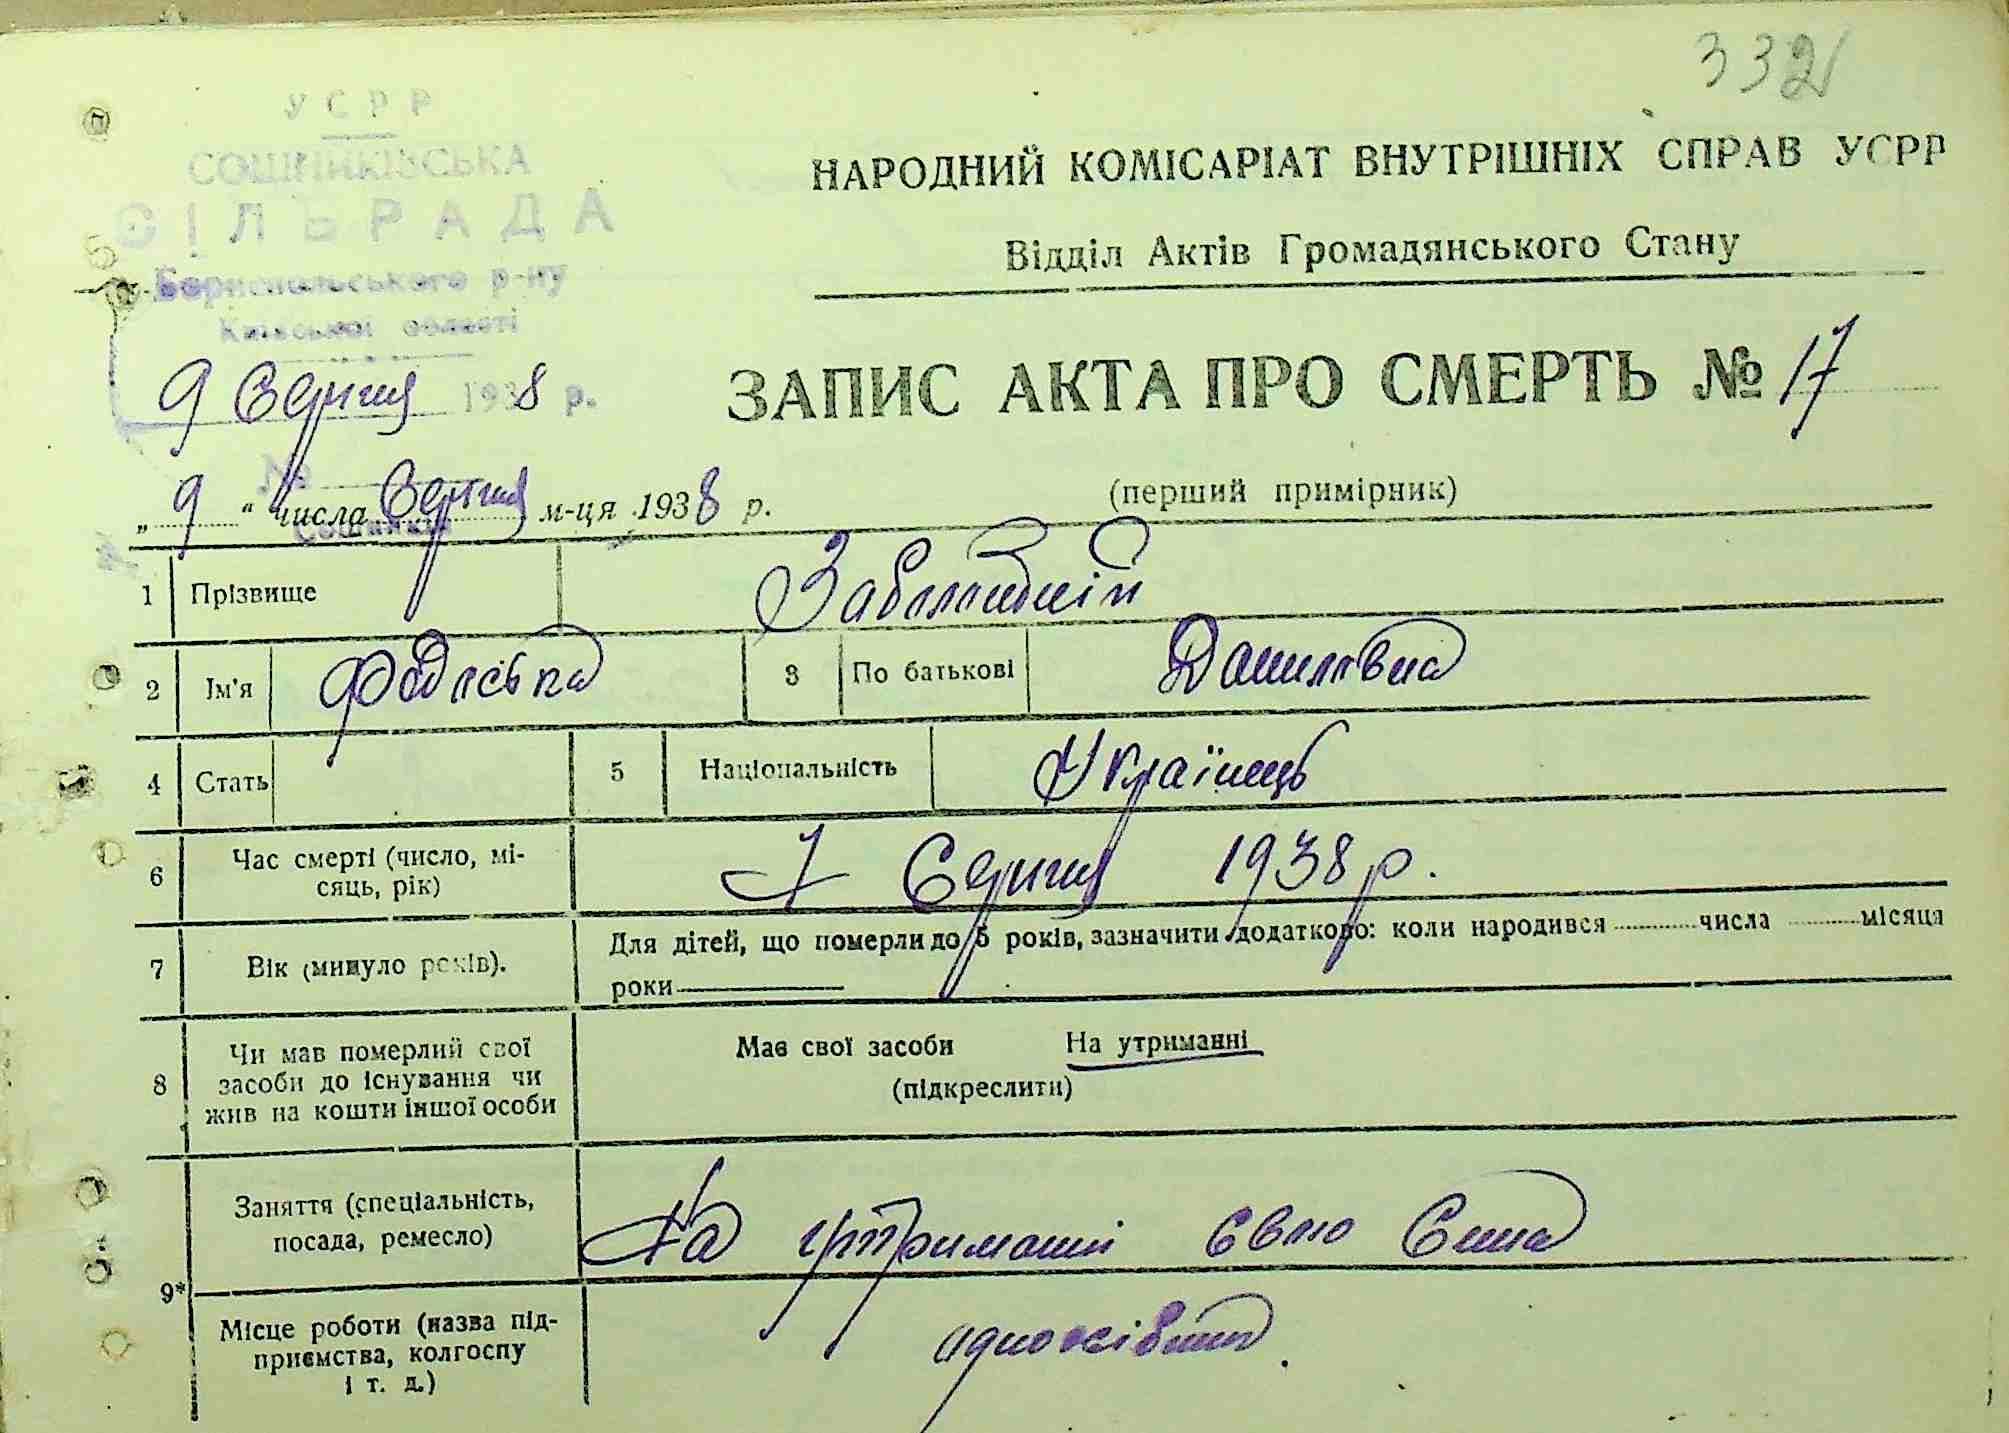 332
УСРР
СОШНИКІВСЬКА
СІЛЬРАДА
Бориспольського р-ну
Київської області
9 Серпня 1938 р.
№
Сошників
НАРОДНИЙ КОМІСАРІАТ ВНУТРІШНІХ СПРАВ УСРР
Відділ Актів Громадянського Стану
ЗАПИС АКТА ПРО СМЕРТЬ № 17
(перший примірник)
„ 9 “ числа Серпня м-ця 1938 р.
1 Прізвище
2 Ім'я 3 По батькові Данилівна
4 Стать 5 Національність Українець
6 Час смерті (число, мі-
сяць, рік) 7 Серпня 1938 р.
7 Вік (минуло років). Для дітей, що померли до 5 років, зазначити додатково: коли народився числа місяця
роки
8 Чи мав померлий свої
засоби до існування чи
жив на кошти іншої особи
Має свої засоби На утриманні
(підкреслити)
9* Заняття (спеціальність,
посада, ремесло) На утриманні свого сина
Місце роботи (назва під-
приємства, колгоспу
і т. д.)